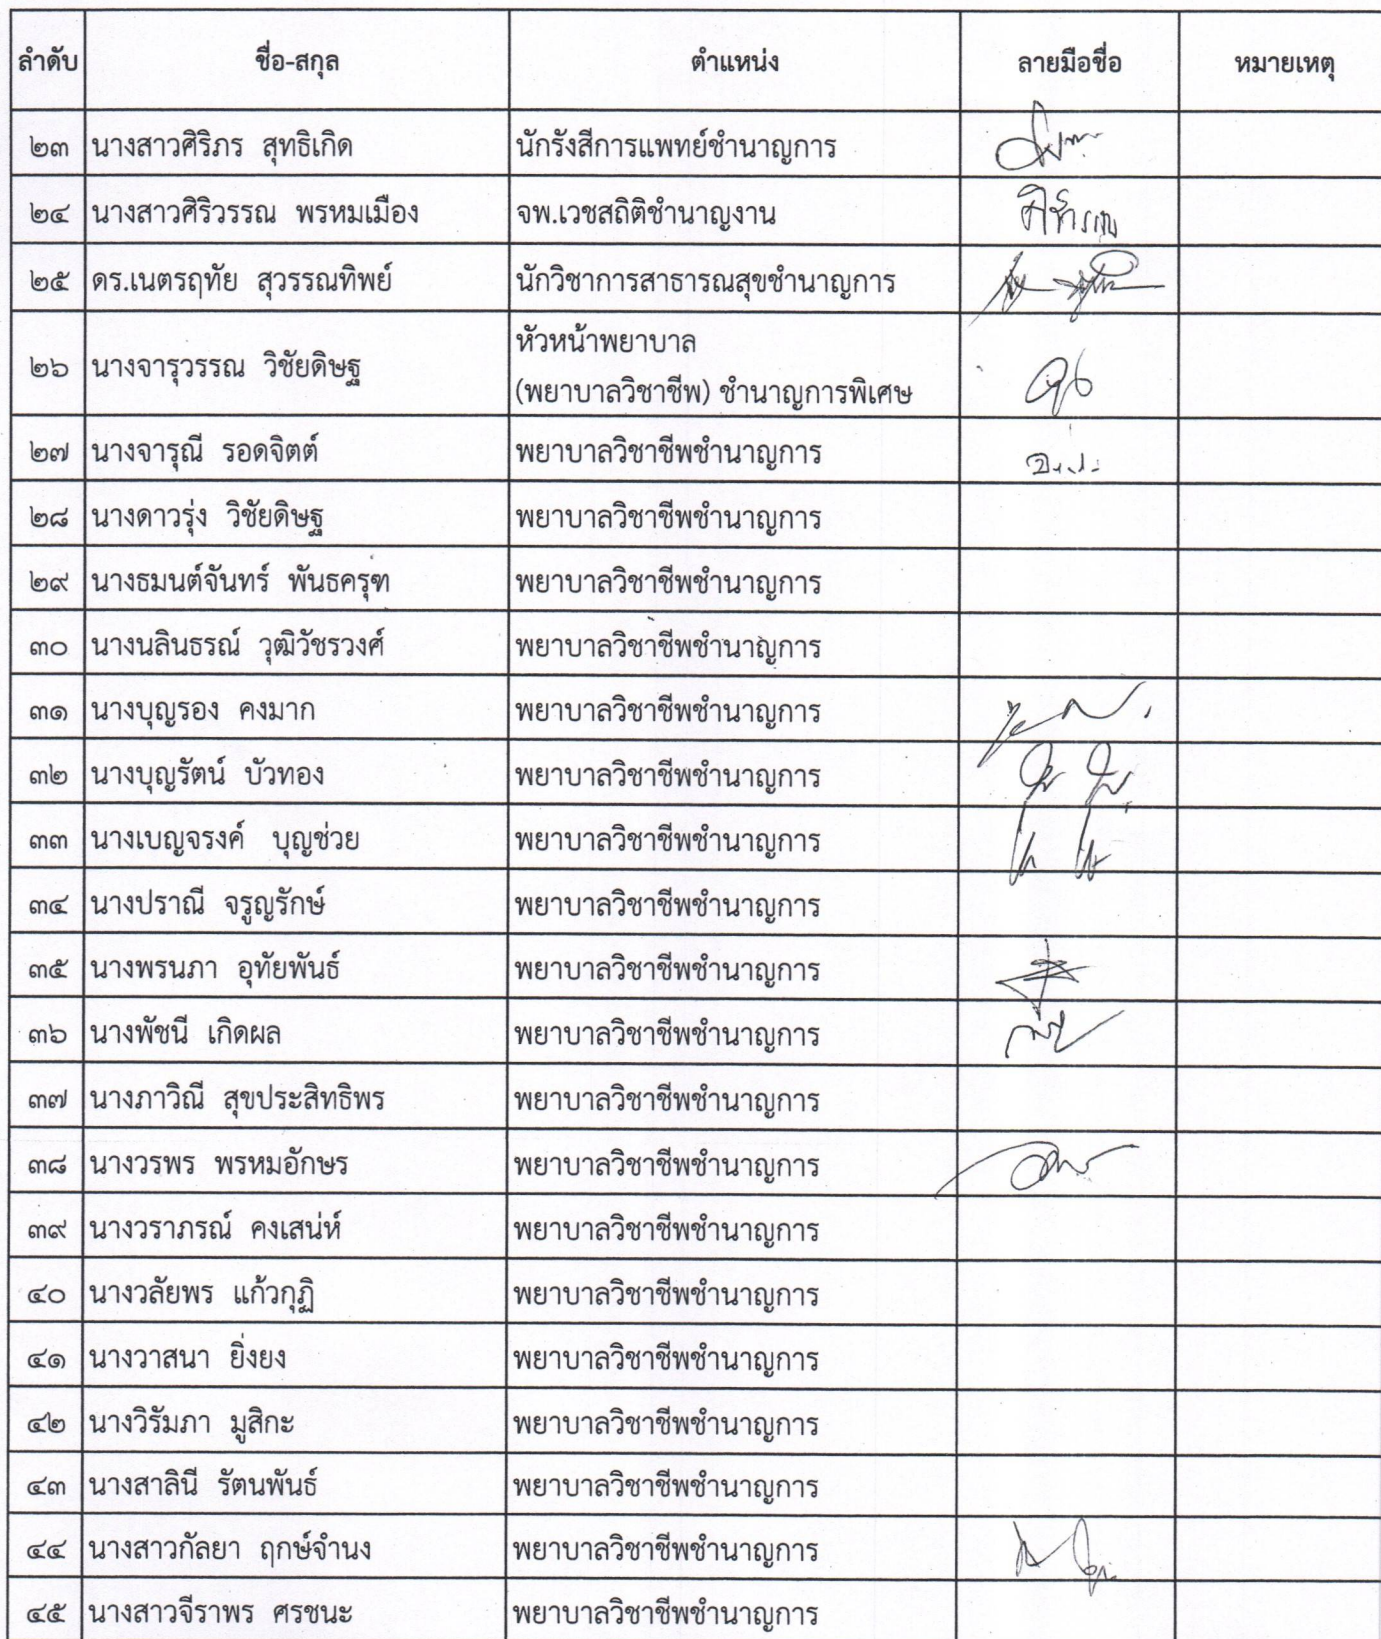 ลำดับ ชื่อ-สกุล ตำแหน่ง ลายมือชื่อ หมายเหตุ
๒๓ นางสาวศิริภร สุทธิเกิด นักรังสีการแพทย์ชำนาญการ
๒๔ นางสาวศิริวรรณ พรหมเมือง จพ.เวชสถิติชำนาญงาน
๒๕ ดร.เนตรฤทัย สุวรรณทิพย์ นักวิชาการสาธารณสุขชำนาญการ
๒๖ นางจารุวรรณ วิชัยดิษฐ หัวหน้าพยาบาล
(พยาบาลวิชาชีพ) ชำนาญการพิเศษ
๒๗ นางจารุณี รอดจิตต์ พยาบาลวิชาชีพชำนาญการ
๒๘ นางดาวรุ่ง วิชัยดิษฐ พยาบาลวิชาชีพชำนาญการ
๒๙ นางธมนต์จันทร์ พันธครุฑ พยาบาลวิชาชีพชำนาญการ
๓๐ นางนลินธรณ์ วุฒิวัชรวงศ์ พยาบาลวิชาชีพชำนาญการ
๓๑ นางบุญรอง คงมาก พยาบาลวิชาชีพชำนาญการ
๓๒ นางบุญรัตน์ บัวทอง พยาบาลวิชาชีพชำนาญการ
๓๓ นางเบญจรงค์ บุญช่วย พยาบาลวิชาชีพชำนาญการ
๓๔ นางปราณี จรูญรักษ์ พยาบาลวิชาชีพชำนาญการ
๓๕ นางพรนภา อุทัยพันธ์ พยาบาลวิชาชีพชำนาญการ
๓๖ นางพัชนี เกิดผล พยาบาลวิชาชีพชำนาญการ
๓๗ นางภาวิณี สุขประสิทธิพร พยาบาลวิชาชีพชำนาญการ
๓๘ นางวรพร พรหมอักษร พยาบาลวิชาชีพชำนาญการ
๓๙ นางวราภรณ์ คงเสน่ห์ พยาบาลวิชาชีพชำนาญการ
๔๐ นางวลัยพร แก้วกุฏิ พยาบาลวิชาชีพชำนาญการ
๔๑ นางวาสนา ยิ่งยง พยาบาลวิชาชีพชำนาญการ
๔๒ นางวิรัมภา มูสิกะ พยาบาลวิชาชีพชำนาญการ
๔๓ นางสาลินี รัตนพันธ์ พยาบาลวิชาชีพชำนาญการ
๔๔ นางสาวกัลยา ฤกษ์จำนง พยาบาลวิชาชีพชำนาญการ
๔๕ นางสาวจีราพร ศรชนะ พยาบาลวิชาชีพชำนาญการ